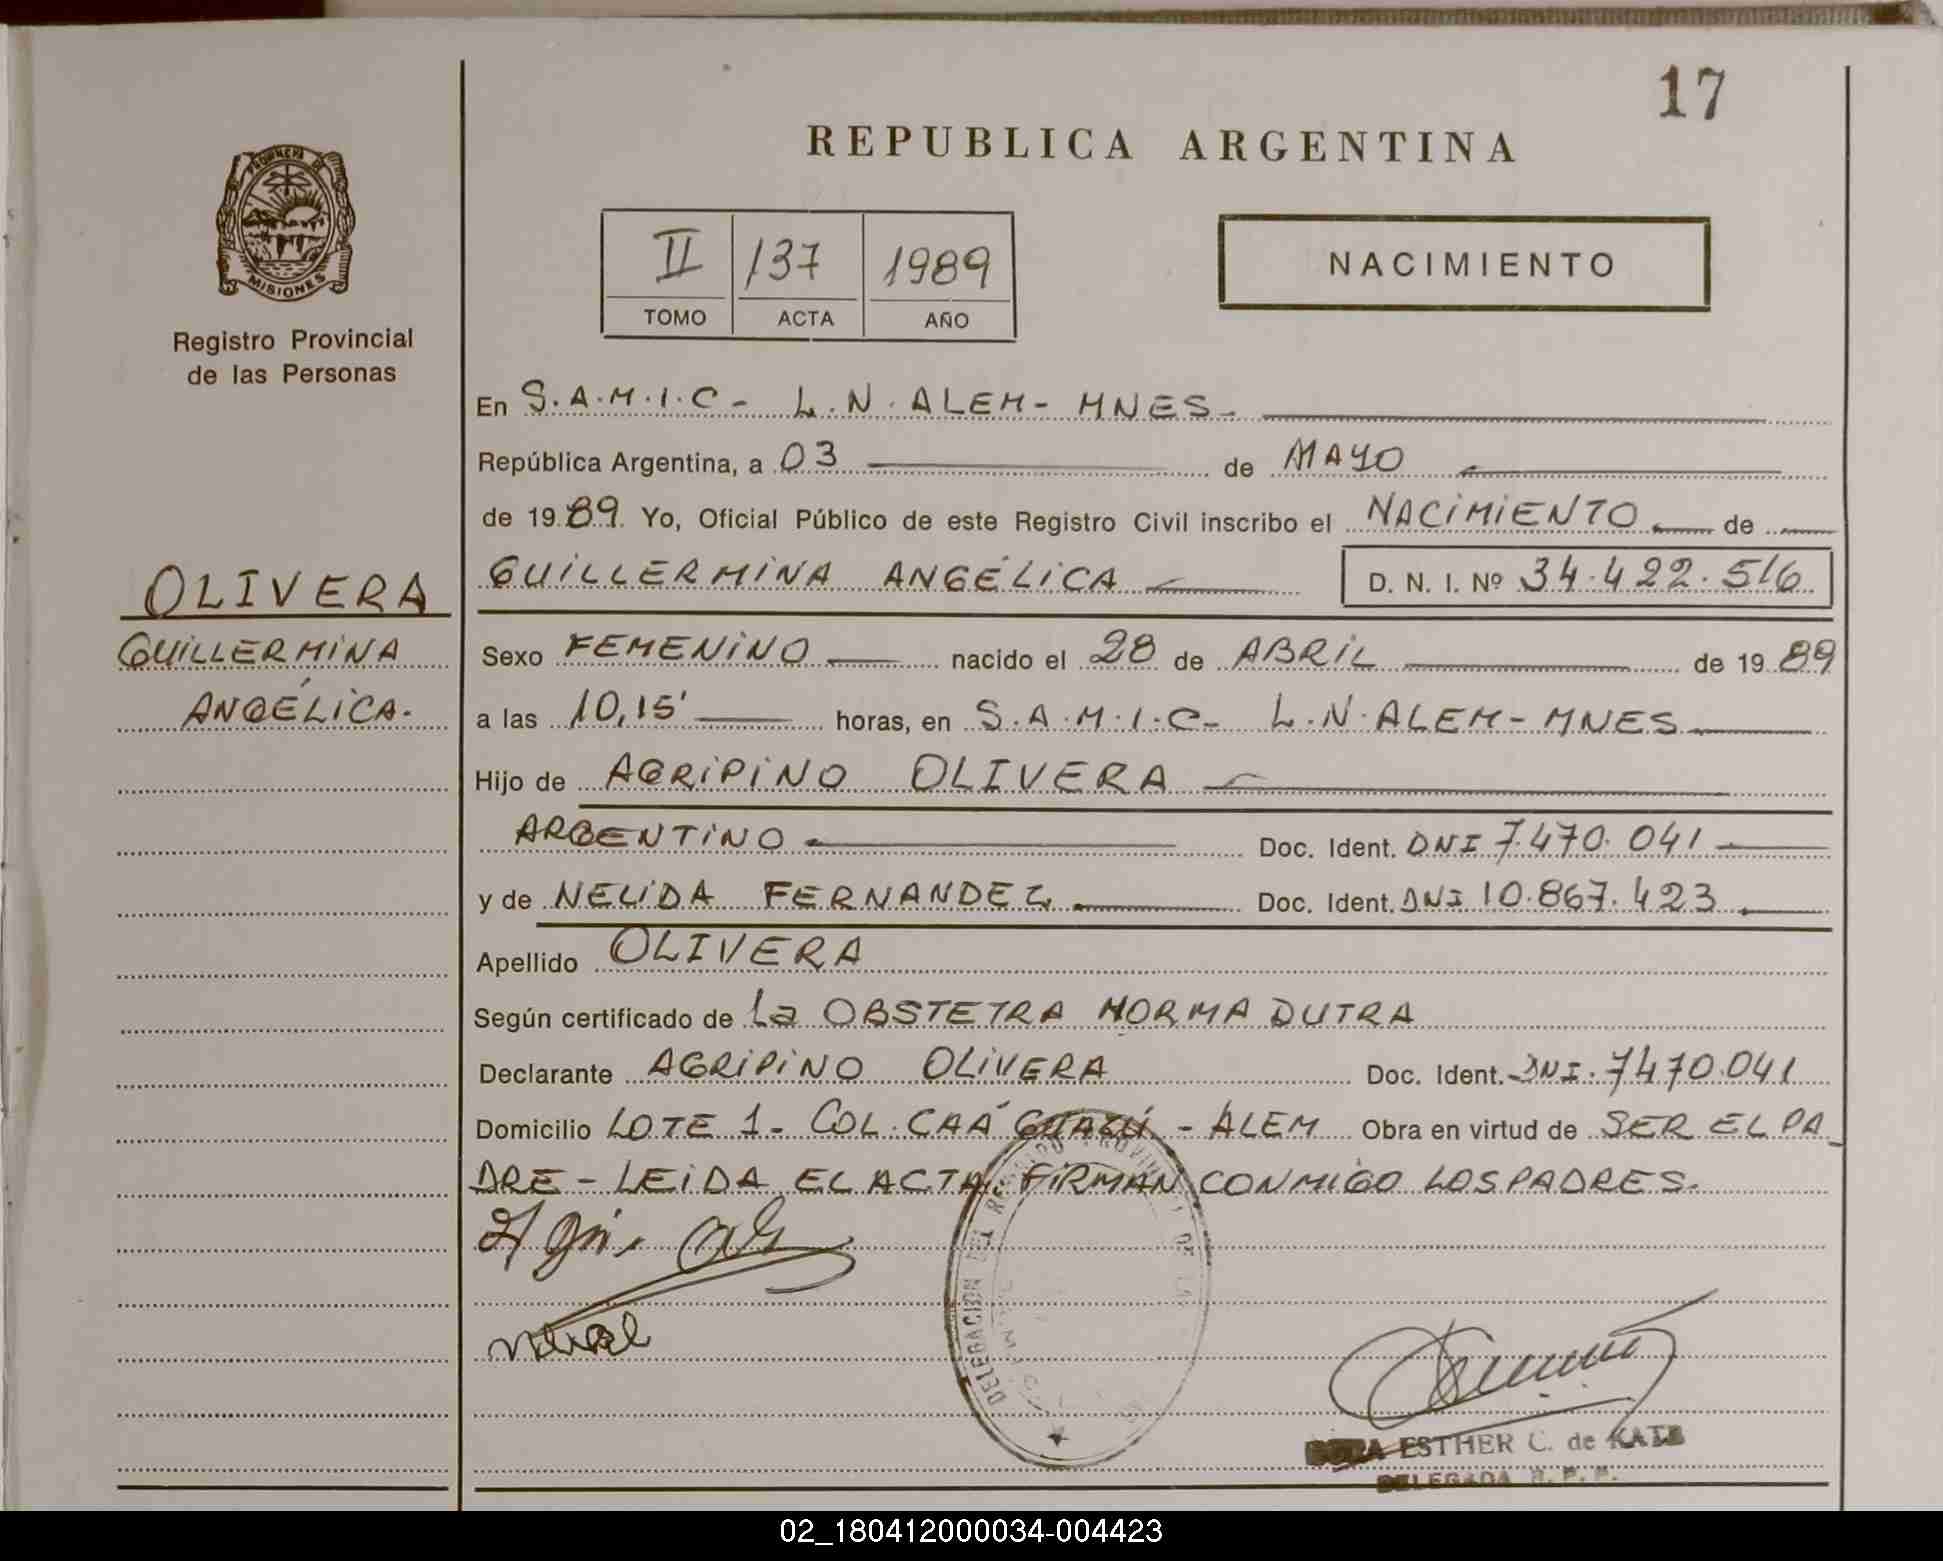 17
REPUBLICA ARGENTINA
PROVINCIA DE
MISIONES
Registro Provincial
de las Personas
II 137 1989
TOMO ACTA AÑO
NACIMIENTO
En S.A.M.I.C- L.N.ALEM- MNES-
República Argentina, a 03 de MAYO
de 1989. Yo, Oficial Público de este Registro Civil inscribo el NACIMIENTO de
GUILLERMINA ANGÉLICA D. N. I. Nº 34.422.516
OLIVERA
GUILLERMINA
ANGÉLICA.
Sexo FEMENINO nacido el 28 de ABRIL de 1989
a las 10,15' horas, en S.A.M.I.C- L.N.ALEM-MNES
Hijo de AGRIPINO OLIVERA
ARGENTINO Doc. Ident. DNI 7.470.041
y de NELIDA FERNANDEZ Doc. Ident. DNI 10.867.423
Apellido OLIVERA
Según certificado de La OBSTETRA NORMA DUTRA
Declarante AGRIPINO OLIVERA Doc. Ident. DNI. 7470.041
Domicilio LOTE 1- COL.CAÁ GUAZÚ - ALEM Obra en virtud de SER EL PA_
DRE - LEIDA EL ACTA FIRMAN CONMIGO LOS PADRES.
DELEGACION DEL REGISTRO PROVINCIAL DE LAS
ESTHER C. de KATZ
DELEGADA R. P. P.
02_180412000034-004423